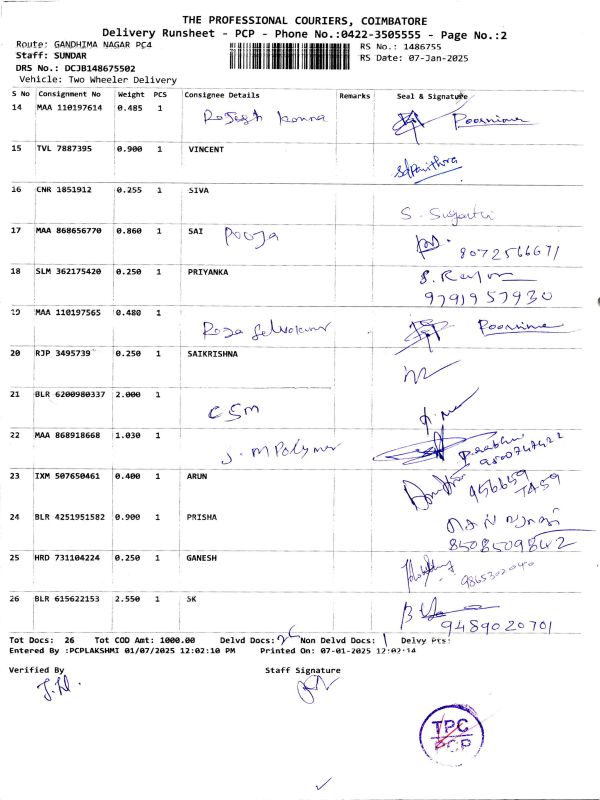 THE PROFESSIONAL COURIERS, COIMBATORE
Delivery Runsheet - PCP - Phone No.:0422-3505555 - Page No.:2
Route: GANDHIMA NAGAR PC4 RS No.: 1486755
Staff: SUNDAR RS Date: 07-Jan-2025
DRS No.: DCJB148675502
Vehicle: Two Wheeler Delivery
S No Consignment No Weight PCS Consignee Details Remarks Seal & Signature
14 MAA 110197614 0.485 1 Rajesh Kanna Poornima
15 TVL 7887395 0.900 1 VINCENT
16 CNR 1851912 0.255 1 SIVA
17 MAA 868656770 0.860 1 SAI Pooja
8072566671
18 SLM 362175420 0.250 1 PRIYANKA
9791957930
19 MAA 110197565 0.480 1 Poornima
20 RJP 3495739 0.250 1 SAIKRISHNA
21 BLR 6200980337 2.000 1 CSM
22 MAA 868918668 1.030 1 J. M Polymer Prabhu
23 IXM 507650461 0.400 1 ARUN
24 BLR 4251951582 0.900 1 PRISHA
8508509842
25 HRD 731104224 0.250 1 GANESH 9865302040
26 BLR 615622153 2.550 1 SK
9489020701
Tot Docs: 26 Tot COD Amt: 1000.00 Delvd Docs: 25 Non Delvd Docs: 1 Delvy Pts:
Entered By :PCPLAKSHMI 01/07/2025 12:02:10 PM Printed On: 07-01-2025 12:02:14
Verified By Staff Signature
TPC
PCP